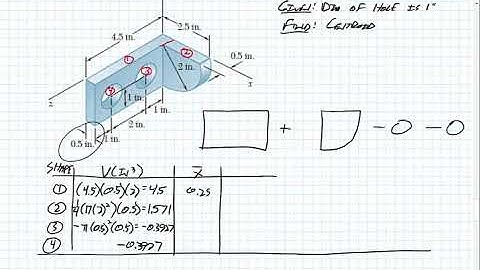 GIVEN: DIA OF HOLE IS 1"
FIND: CENTROID
4.5 in.
2.5 in.
①
②
③
④
2 in.
0.5 in.
x
z
1 in.
1 in.
2 in.
0.5 in.
+
- -
SHAPE V(IN³) x̄
① (4.5)(0.5)(2)=4.5 0.25
② ¼(π(2)²)(0.5)=1.571
③ -π(0.5)²(0.5)=-0.3927
④ -0.3927